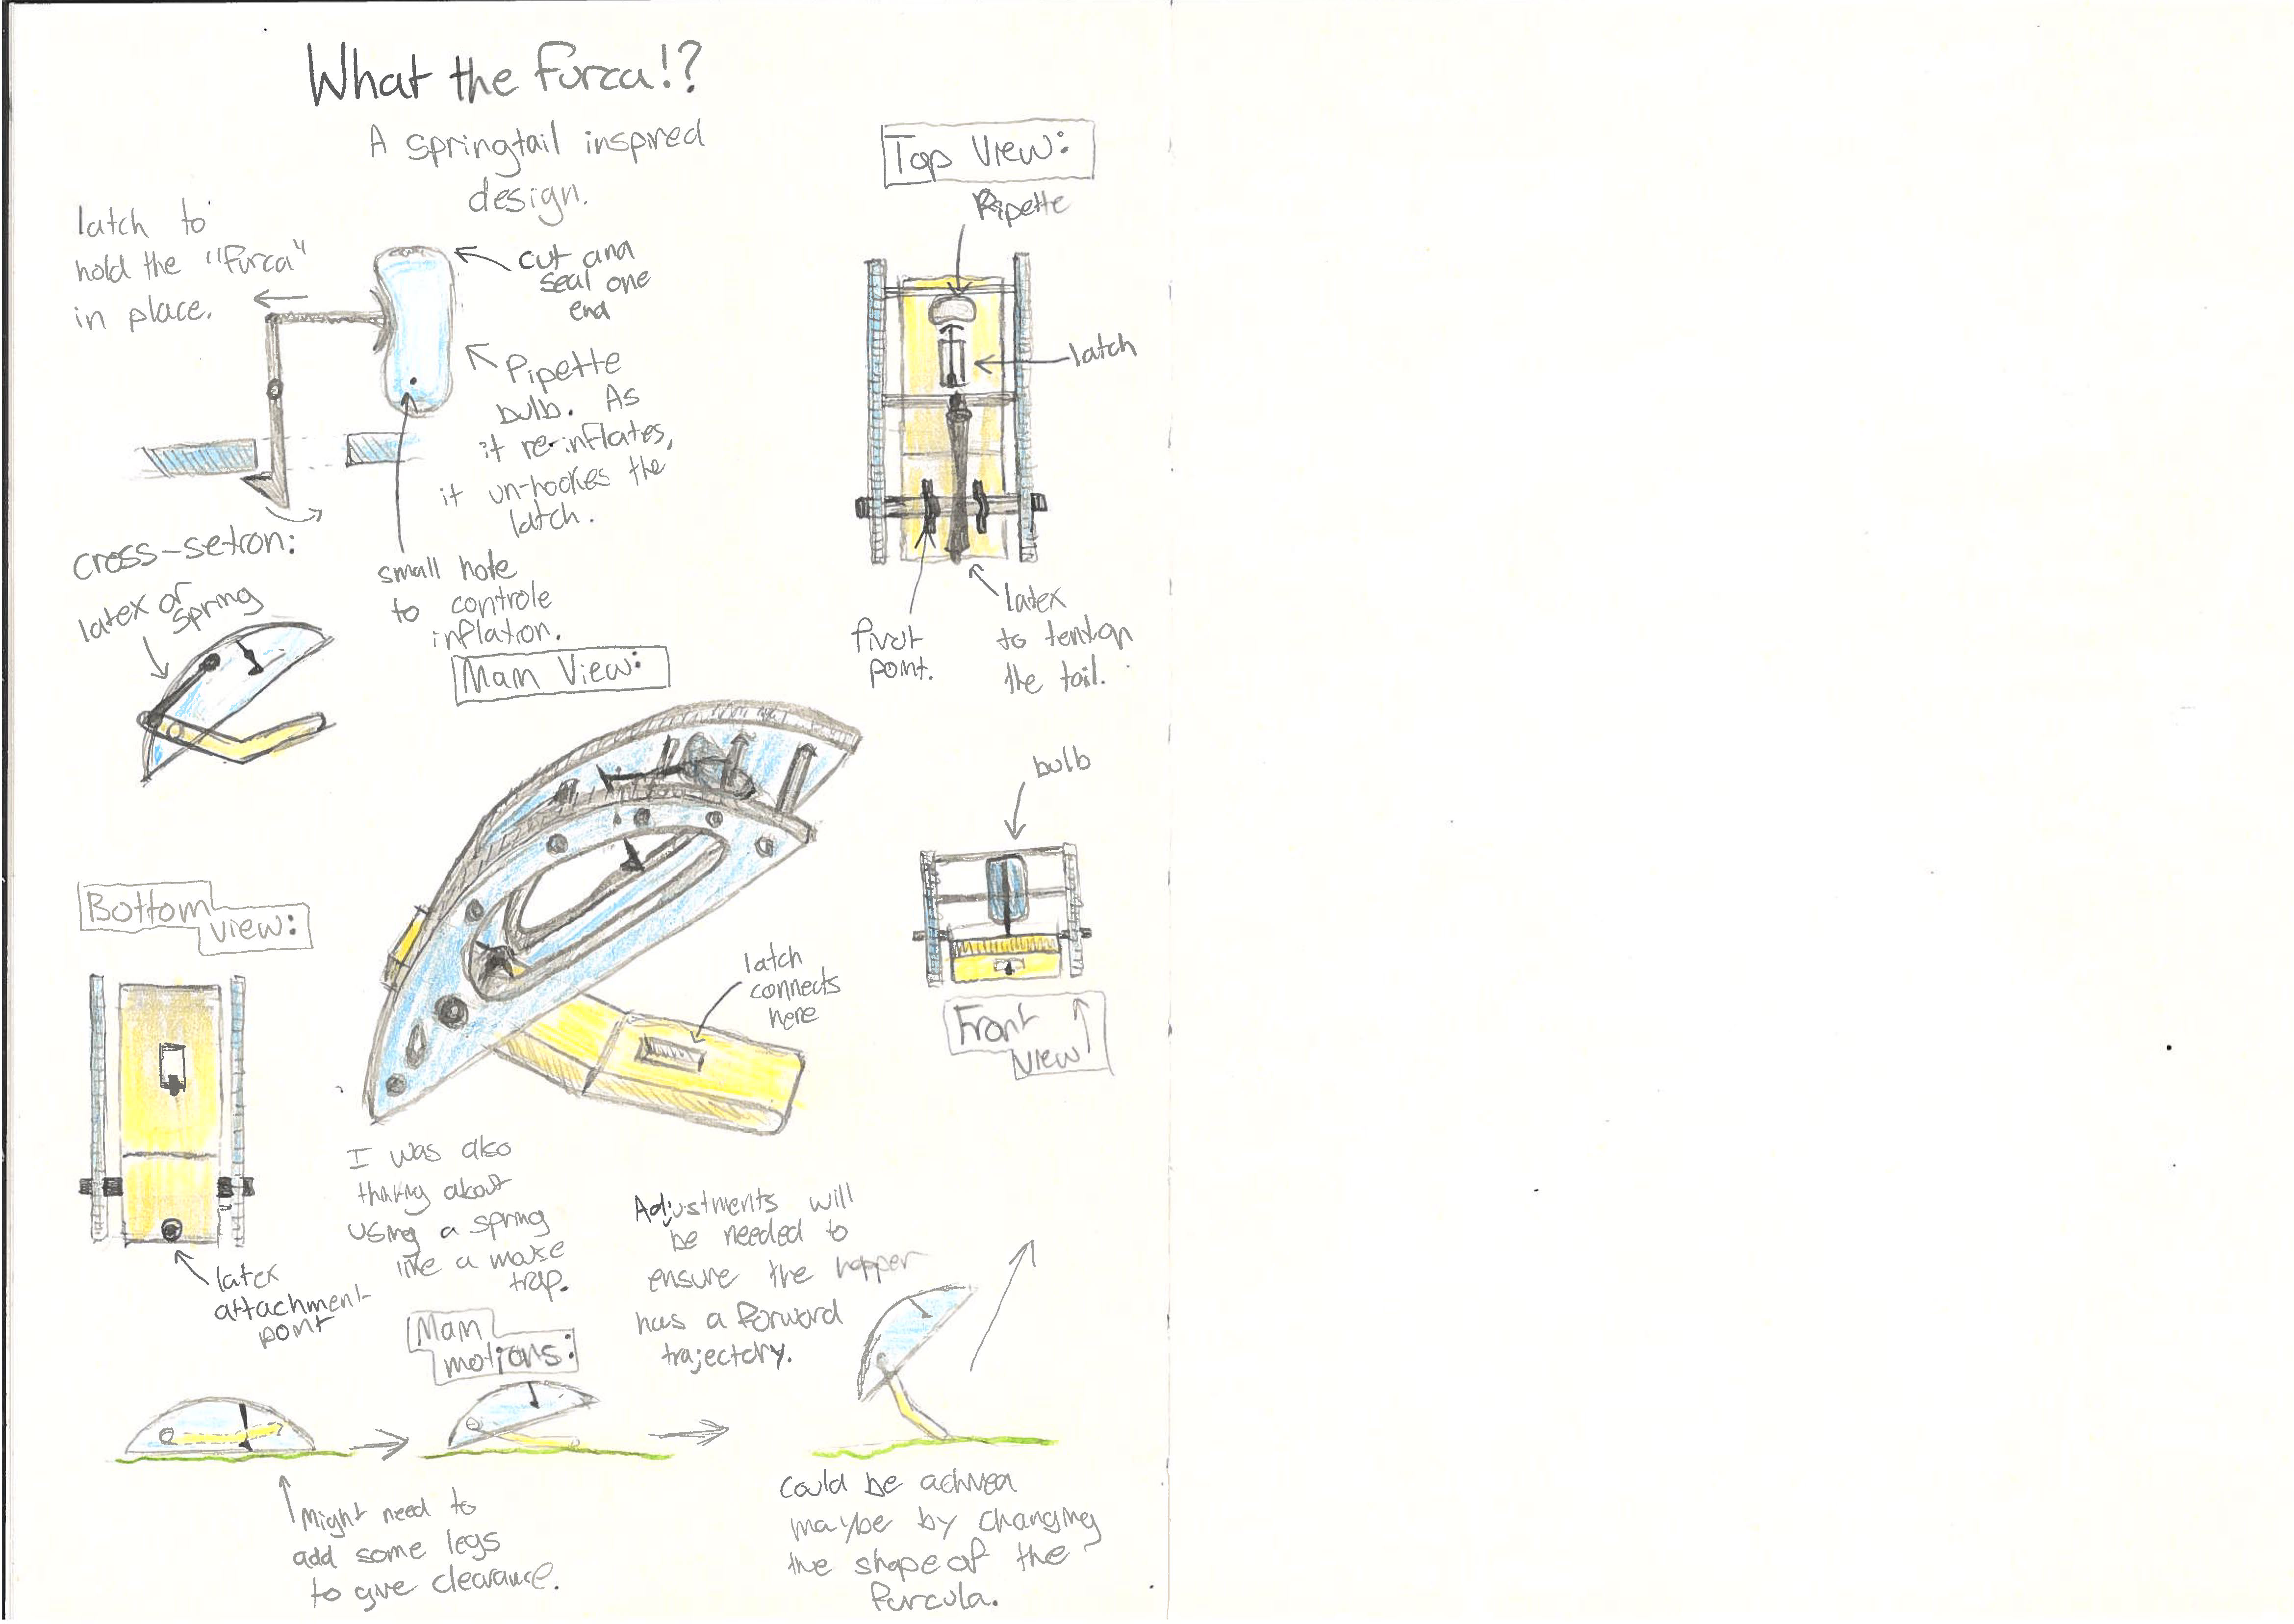 What the furca!?
A springtail inspired
design.
latch to
hold the "furca"
in place.
cut and
seal one
end
Pipette
bulb. As
it re-inflates,
it un-hookes the
latch.
small hole
to controle
inflation.
cross-setion:
latex or
spring
Top View:
Pipette
latch
Pivot
point.
latex
to tention
the tail.
Main View:
latch
connects
here
bulb
Front
view
Bottom
view:
latex
attachment
point
I was also
thinking about
using a spring
like a mouse
trap.
Adjustments will
be needed to
ensure the hopper
has a forward
trajectory.
Main
motions:
Might need to
add some legs
to give clearance.
Could be
maybe by changing
the shape of the
furcula.